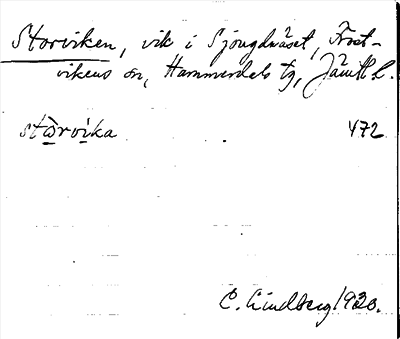 Storviken, vik i Sjougdnäset, Frost-
vikens sn, Hammerdals tg, Jämtl l.
stọ̀rvi̱ka 472
C. Lindberg 1930.